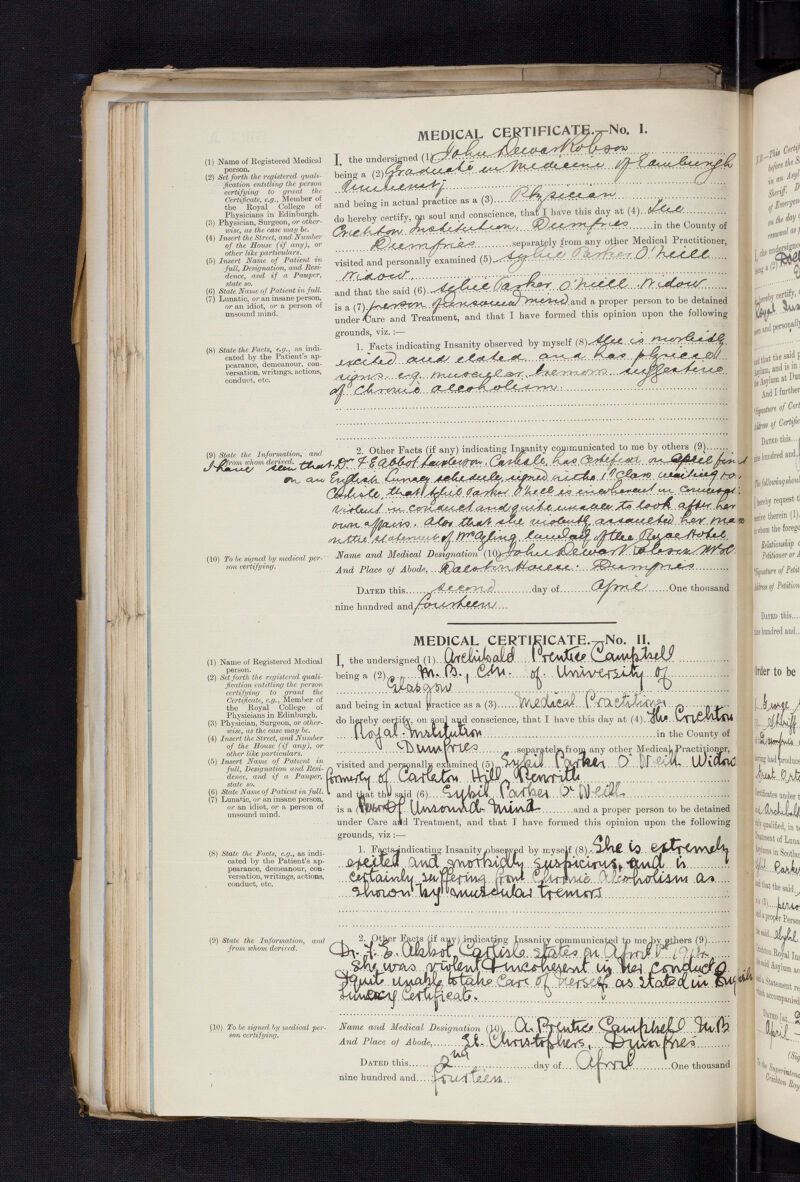 MEDICAL CERTIFICATE.—No. I.
(1) Name of Registered Medical person.
(2) Set forth the registered qualification entitling the person certifying to grant the Certificate, e.g., Member of the Royal College of Physicians in Edinburgh.
(3) Physician, Surgeon, or otherwise, as the case may be.
(4) Insert the Street, and Number of the House (if any), or other like particulars.
(5) Insert Name of Patient in full, Designation, and Residence, and if a Pauper, state so.
(6) State Name of Patient in full.
(7) Lunatic, or an insane person, or an idiot, or a person of unsound mind.
(8) State the Facts, e.g., as indicated by the Patient's appearance, demeanour, conversation, writings, actions, conduct, etc.
(9) State the Information, and from whom derived.
(10) To be signed by medical person certifying.
I, the undersigned (1) John Dewar Robson
being a (2) Graduate in Medicine of Edinburgh
University
and being in actual practice as a (3) Physician
do hereby certify, on soul and conscience, that I have this day at (4) the
Crichton Institution, Dumfries in the County of
Dumfries separately from any other Medical Practitioner,
visited and personally examined (5) Sybil Parker O'Neill
Widow
and that the said (6) Sybil Parker O'Neill Widow
is a (7) person of unsound mind and a proper person to be detained
under Care and Treatment, and that I have formed this opinion upon the following
grounds, viz. :—
1. Facts indicating Insanity observed by myself (8) She is morbidly
excited and elated and has physical
signs e.g. muscular tremors suggestive
of chronic alcoholism
2. Other Facts (if any) indicating Insanity communicated to me by others (9)
I have seen that Dr F E Abbot Carlisle, has certified on April
on an English Lunacy schedule, signed in the 1st Class waiting room
Carlisle, that Sybil Parker O'Neill is incoherent in conversation
violent in conduct and quite unable to look after her
own affairs. Also that she violently assaulted her
in the statement of landlady of the Hotel
Name and Medical Designation (10) John Dewar Robson
And Place of Abode, House Dumfries
DATED this second day of April One thousand
nine hundred and fourteen
MEDICAL CERTIFICATE.—No. II.
(1) Name of Registered Medical person.
(2) Set forth the registered qualification entitling the person certifying to grant the Certificate, e.g., Member of the Royal College of Physicians in Edinburgh.
(3) Physician, Surgeon, or otherwise, as the case may be.
(4) Insert the Street, and Number of the House (if any), or other like particulars.
(5) Insert Name of Patient in full, Designation and Residence, and if a Pauper, state so.
(6) State Name of Patient in full.
(7) Lunatic, or an insane person, or an idiot, or a person of unsound mind.
(8) State the Facts, e.g., as indicated by the Patient's appearance, demeanour, conversation, writings, actions, conduct, etc.
(9) State the Information, and from whom derived.
(10) To be signed by medical person certifying.
I, the undersigned (1) Archibald Prentice Campbell
being a (2) M.B., C.M. of University of
Glasgow
and being in actual practice as a (3) Medical Practitioner
do hereby certify, on soul and conscience, that I have this day at (4) the Crichton
Royal Institution in the County of
Dumfries separately from any other Medical Practitioner,
visited and personally examined (5) Sybil Parker O'Neill Widow
formerly of Carleton Hill Penrith
and that the said (6) Sybil Parker O'Neill
is a Person of Unsound Mind and a proper person to be detained
under Care and Treatment, and that I have formed this opinion upon the following
grounds, viz :—
1. Facts indicating Insanity observed by myself (8) She is extremely
excited and morbidly suspicious, and is
certainly suffering from Chronic Alcoholism as
shown by muscular tremors
2. Other Facts (if any) indicating Insanity communicated to me by others (9)
Dr. F. E. Abbot Carlisle states on April 1st 1914
She was violent & incoherent in her conduct &
quite unable to take care of herself as stated in English
Lunacy Certificate.
Name and Medical Designation (10) A. Prentice Campbell M.B
And Place of Abode, St. Christophers, Dumfries
DATED this 2nd day of April One thousand
nine hundred and fourteen